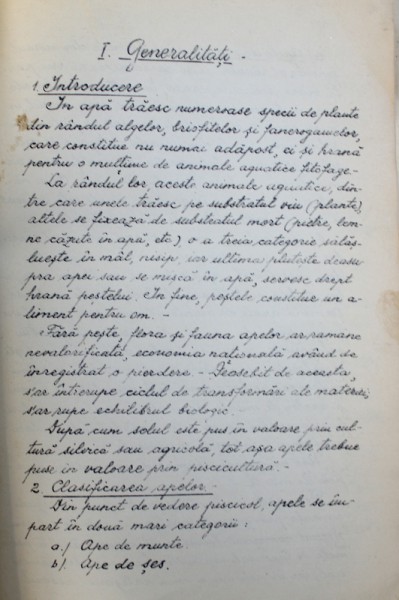 I. Generalități -
1. Introducere
In apă trăesc numeroase specii de plante
din rândul algelor, briofitelor și fanerogamelor,
care constitue nu numai adăpost, ci și hrană
pentru o mulțime de animale aquatice fitofage. -
La rândul lor, aceste animale aquatice, din-
tre care unele trăesc pe substratul viu (plante)
altele se fixează de substratul mort (pietre, lem-
ne căzute în apă, etc) o a treia categorie sălăș-
luește în mâl, nisip iar ultima plutește deasu
pra apei sau se mișcă în apă, servesc drept
hrană peștelui. In fine, peștele constitue un a-
liment pentru om. -
Fără pește, flora și fauna apelor ar ramane
nevalorificată, economia națională având de
înregistrat o pierdere. - Deosebit de aceasta
s'ar întrerupe ciclul de transformări ale materiei,
s'ar rupe echilibrul biologic. -
După cum solul este pus în valoare prin cul-
tură silvică sau agricolă, tot așa apele trebue
puse în valoare prin piscicultură. -
2. Clasificarea apelor. -
Din punct de vedere piscicol, apele se îm-
part în două mari categorii:
a.) Ape de munte.
b.) Ape de șes.